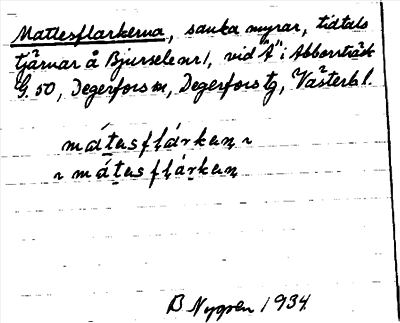 Mattesflarkerna, sanka myrar, tidtals
tjärnar å Bjurselenr1, vid "A" i Abborrträsk
G. 50, Degerfors sn, Degerfors tg, Västerb l.
mátasflárkaṇ ~
~ mátasflárkaṇ
B Nygren 1934.